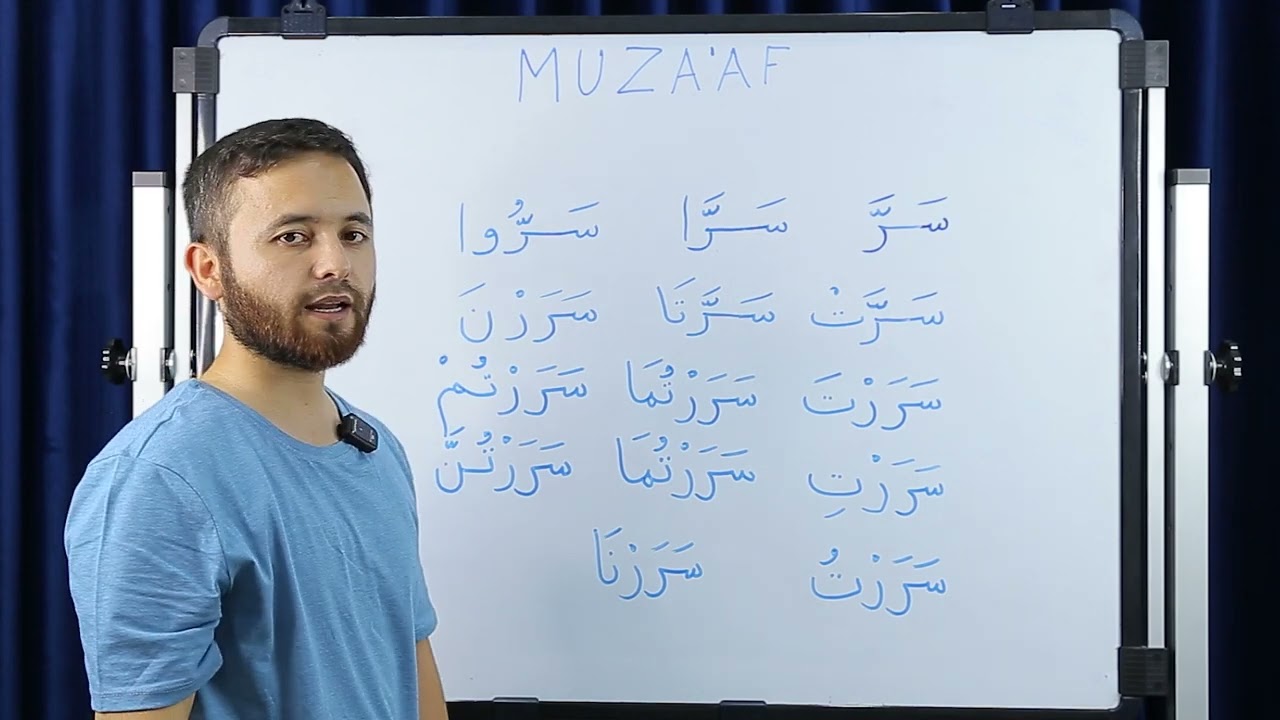 MUZA'AF
سَرَّ سَرَّا سَرُّوا
سَرَّتْ سَرَّتَا سَرَرْنَ
سَرَرْتَ سَرَرْتُمَا سَرَرْتُمْ
سَرَرْتِ سَرَرْتُمَا سَرَرْتُنَّ
سَرَرْتُ سَرَرْنَا